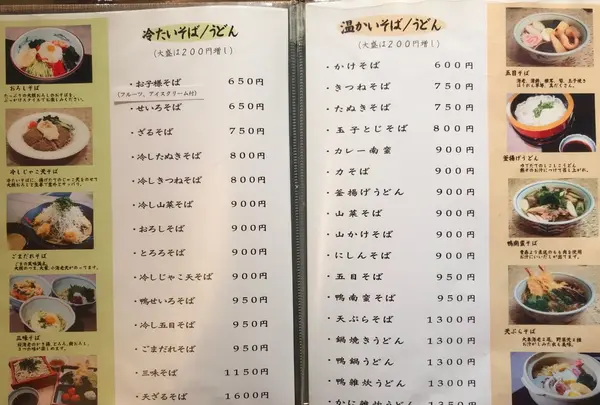 おろしそば
冷しじゃこ天そば
ごまだれそば
三味そば
冷たいそば/うどん
(大盛は200円増し)
・お子様そば 650円
(フルーツ、アイスクリーム付)
・せいろそば 650円
・ざるそば 750円
・冷したぬきそば 800円
・冷しきつねそば 800円
・冷し山菜そば 900円
・おろしそば 900円
・とろろそば 900円
・冷しじゃこ天そば 900円
・鴨せいろそば 950円
・冷し五目そば 950円
・ごまだれそば 950円
・三味そば 1150円
・天ざるそば 1600円
温かいそば/うどん
(大盛は200円増し)
・かけそば 600円
・きつねそば 750円
・たぬきそば 750円
・玉子とじそば 800円
・カレー南蛮 900円
・力そば 900円
・釜揚げうどん 900円
・山菜そば 900円
・山かけそば 900円
・にしんそば 900円
・五目そば 950円
・鴨南蛮そば 950円
・天ぷらそば 1300円
・鍋焼きうどん 1300円
・鴨鍋うどん 1300円
・鴨雑炊うどん 1300円
・かに雑炊うどん
五目そば
釜揚げうどん
鴨南蛮そば
天ぷらそば